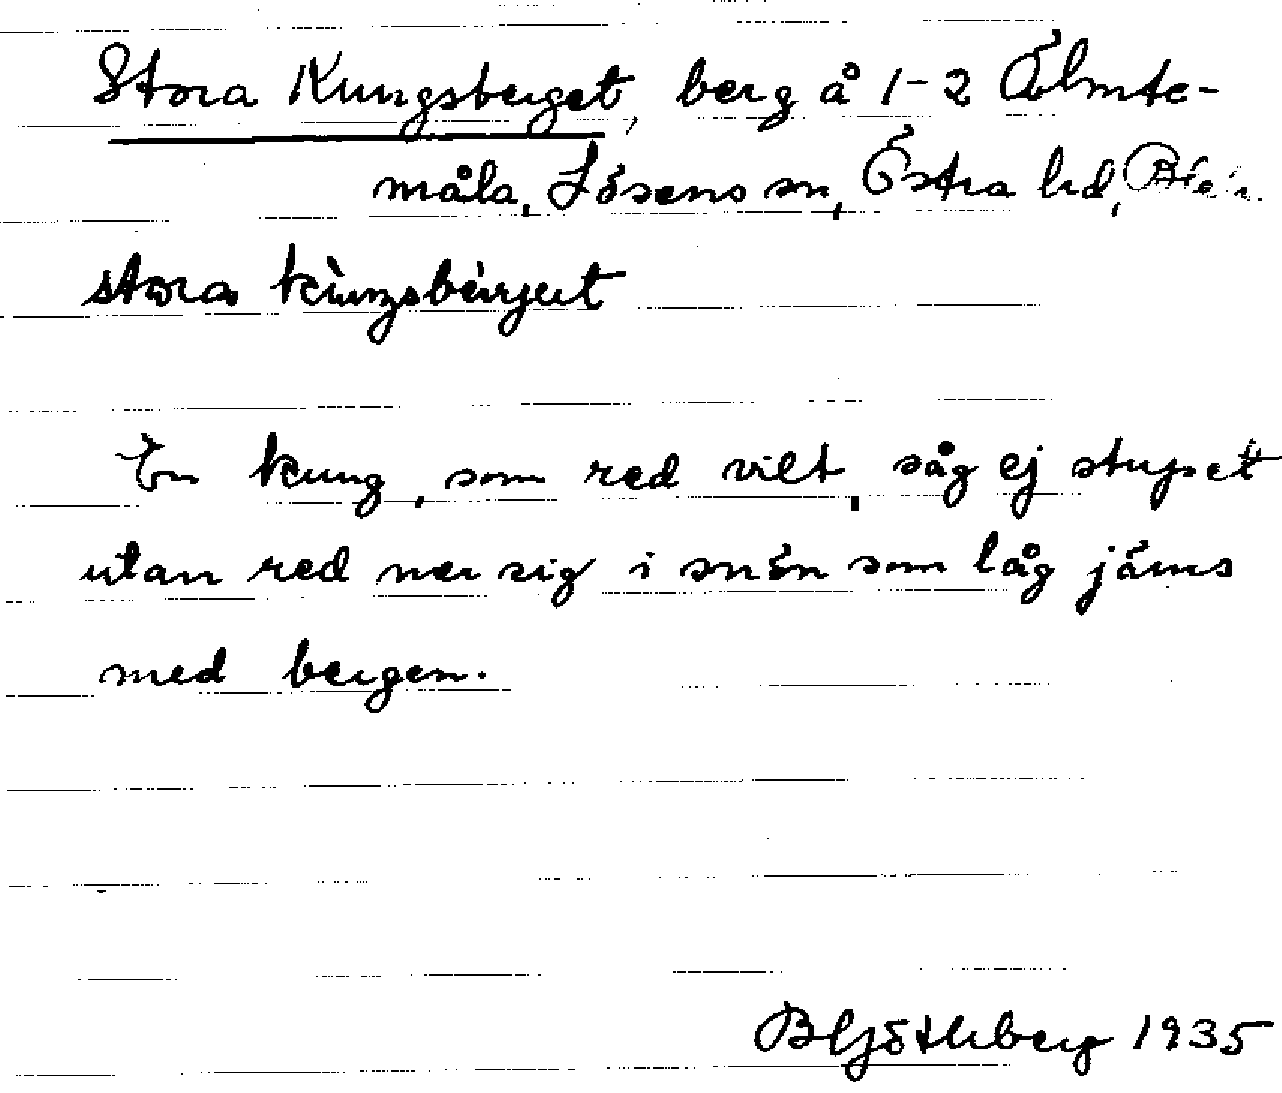 Stora Kungsberget, berg å 1-2 Älmte-
måla, Lösens sn, Östra hd,
stora kùngsbärjet
En kung, som red vilt, såg ej stupet
utan red ner sig i snön som låg jäms
med bergen.
1935